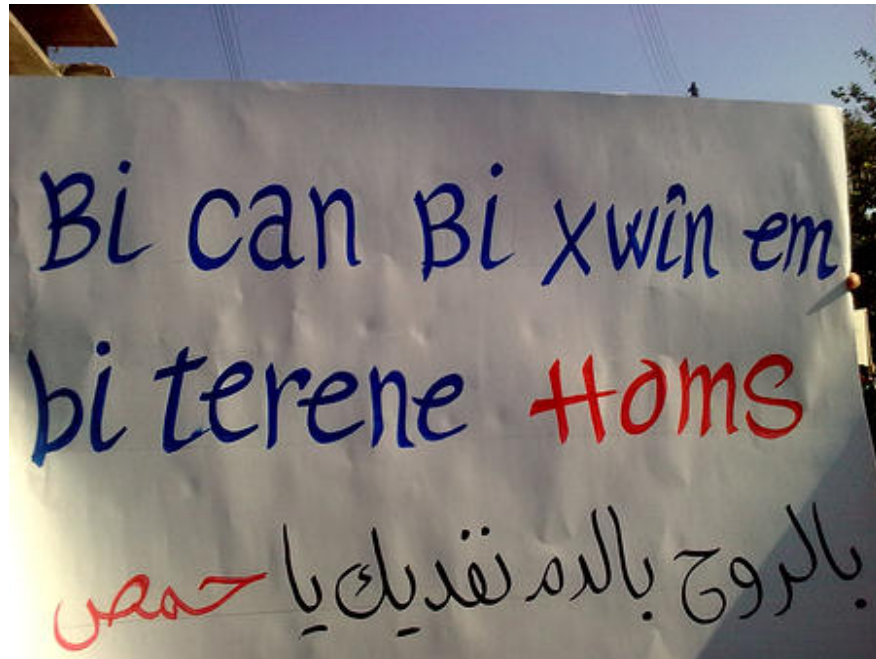 Bi can Bi xwîn em
bi terene Homs
بالروح بالدم نفديك يا حمص